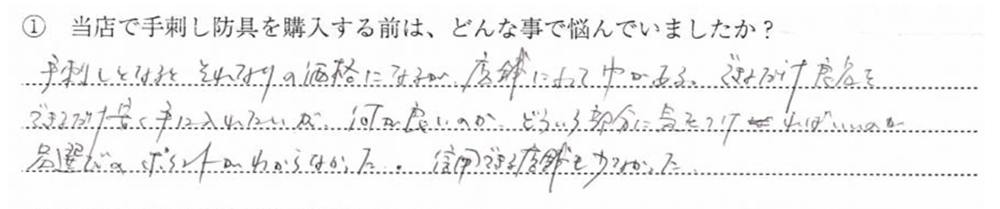 ① 当店で手刺し防具を購入する前は、どんな事で悩んでいましたか？
手刺しとなるとそれなりの価格になるが、店舗によって巾がある。できるだけ良品を
できるだけ安く手に入れたいが、何が良いのか、どういう部分に気をつければいいのか
品選びのポイントがわからなかった。信用できる店舗も少なかった。